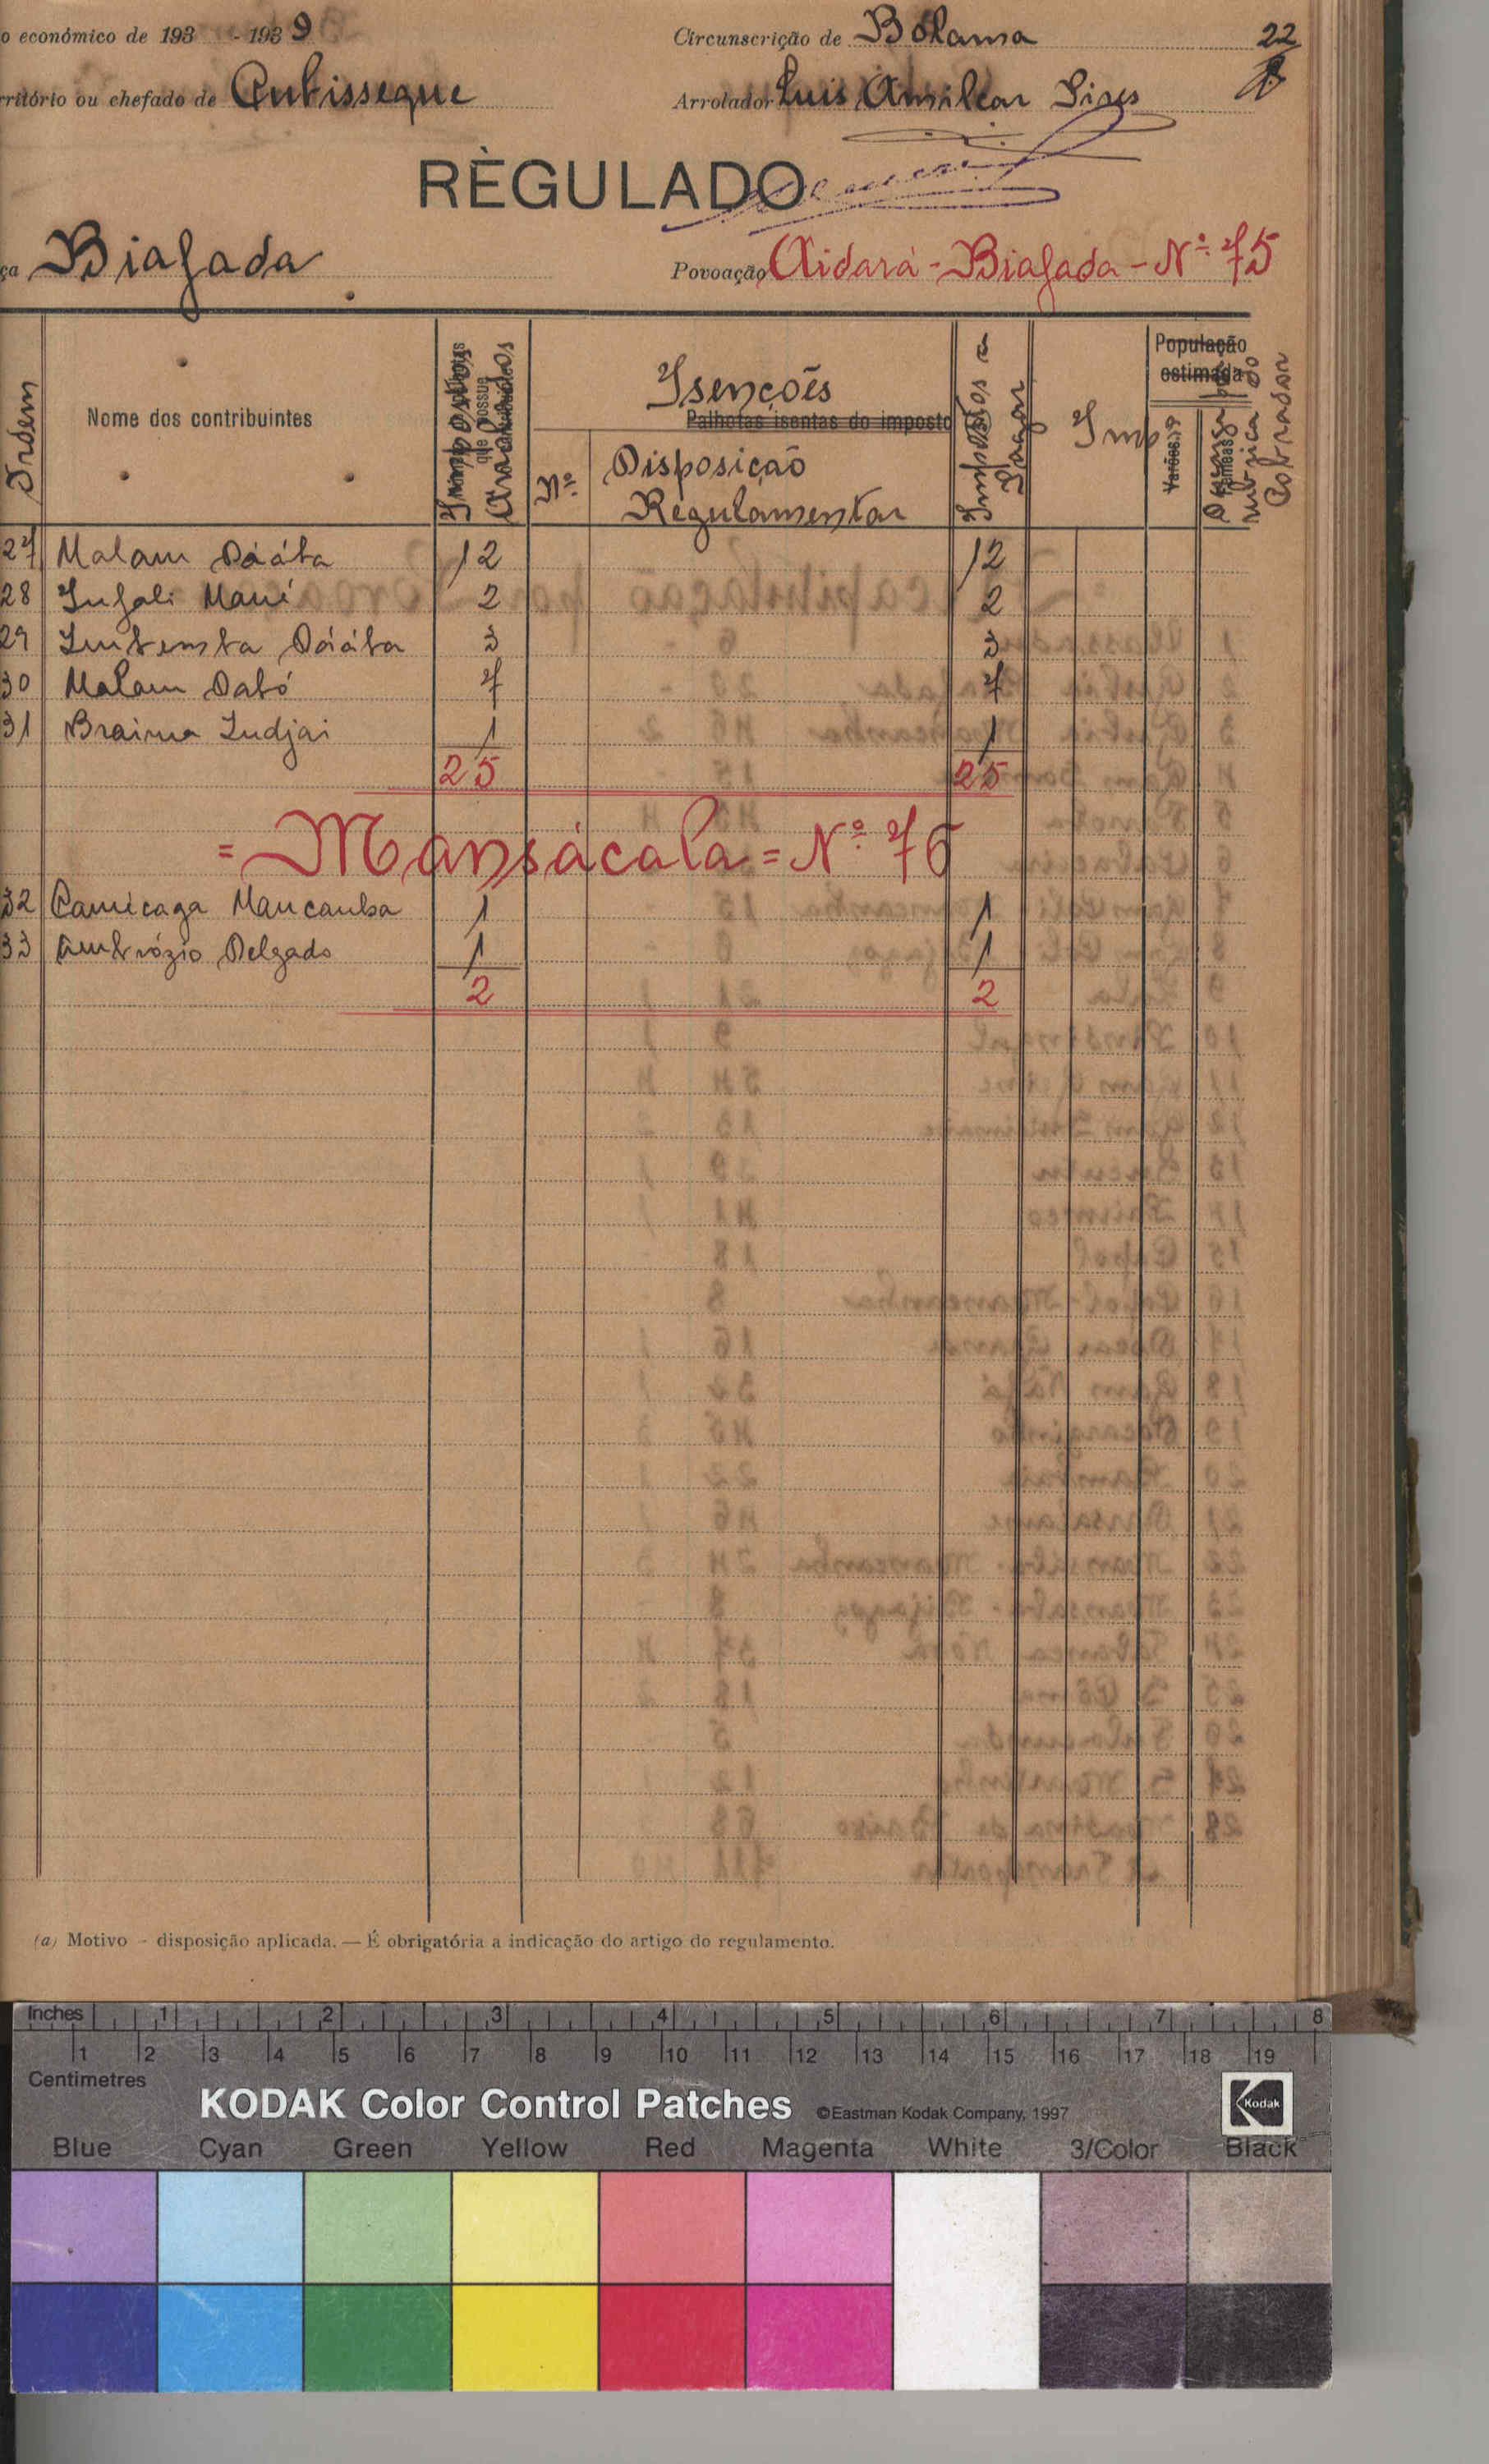 o económico de 193 - 1939
Circunscrição de Bolama
22
rritório ou chefado de Cubisseque
Arrolador Luis Amilcar Pires
RÈGULADO
ça Biafada
Povoação Aidará - Biafada - Nº 75
Ordem
Nome dos contribuintes
Impostos
Arrolados
que possue
Isenções
Palhotas isentas do imposto
Nº
Disposição
Regulamentar
Impostos a
Pagar
Imp
População
estimada
Varões
Fêmeas
rubrica do
Cobrador
27 Malam 12 12
28 Infali Mané 2 2
29 3 3
30 Malam Dabó 7 7
31 Braima Indjai 1 1
25 25
= Mansácala = Nº 76
32 Camicaga Mancanha 1 1
33 Ambrózio Delgado 1 1
2 2
(a) Motivo - disposição aplicada. — É obrigatória a indicação do artigo do regulamento.
Inches 1 2 3 4 5 6 7 8
1 2 3 4 5 6 7 8 9 10 11 12 13 14 15 16 17 18 19
Centimetres
KODAK Color Control Patches ©Eastman Kodak Company, 1997 Kodak
Blue Cyan Green Yellow Red Magenta White 3/Color Black